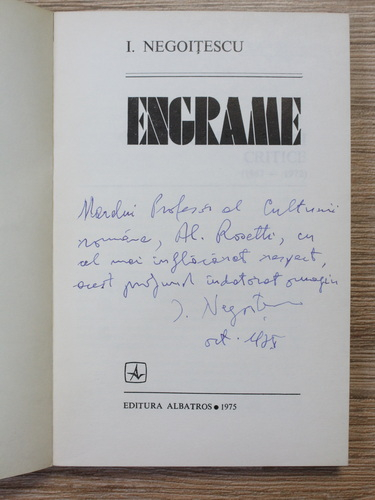 I. NEGOIȚESCU
ENGRAME
Marelui Profesor al Culturii
române, Al. Rosetti, cu
cel mai înflăcărat respect,
acest profund îndatorat omagiu
I. Negoițescu
oct. 1975
EDITURA ALBATROS • 1975